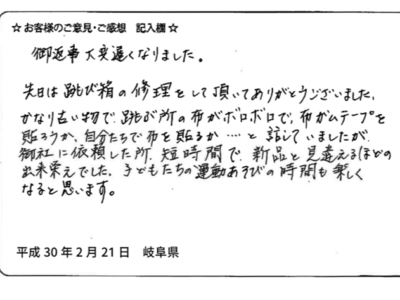 ☆お客様のご意見・ご感想　記入欄☆
御返事大変遅くなりました。
先日は跳び箱の修理をして頂いてありがとうございました。
かなり古い物で、跳び所の布がボロボロで、布ガムテープを
貼ろうか、自分たちで布を貼るか‥‥と話していましたが、
御社に依頼した所、短時間で、新品と見違えるほどの
出来栄えでした。子どもたちの運動あそびの時間も楽しく
なると思います。
平成30年2月21日　岐阜県